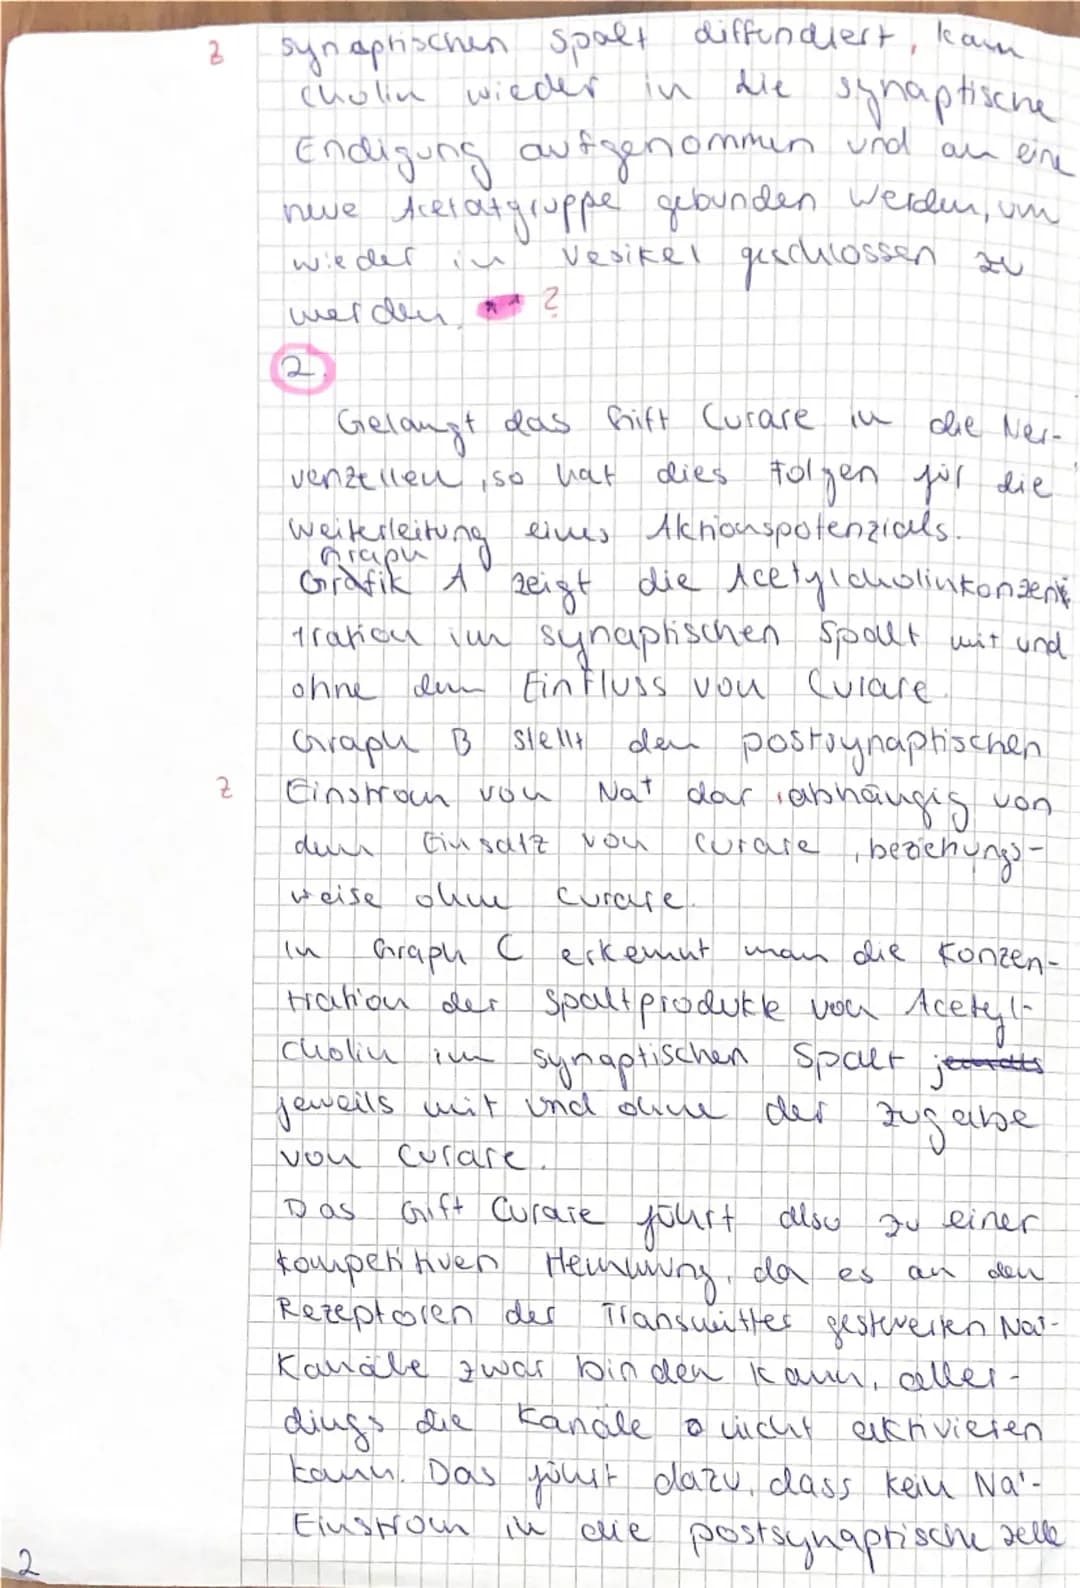 z synaptischen Spalt diffundiert, kann
Cholin wieder in die synaptische
Endigung aufgenommen und an eine
neue Acetatgruppe gebunden werden, um
wieder in Vesikel geschlossen zu
werden. ** ?
2.
Gelangt das Gift Curare in die Ner-
venzellen, so hat dies Folgen für die
Weiterleitung eines Aktionspotenzials.
Graph
Grafik A zeigt die Acetylcholinkonzen
tration im synaptischen Spalt mit und
ohne dem Einfluss von Curare.
Graph B stellt den postsynaptischen
z Einstrom von Na+ dar, abhängig von
dem Einsatz von Curare, beziehungs-
weise ohne Curare.
In Graph C erkennt man die Konzen-
tration der Spaltprodukte von Acetyl-
cholin im synaptischen Spalt
jeweils mit und ohne der Zugabe
von Curare.
Das Gift Curare führt also zu einer
kompetitiven Hemmung, da es an den
Rezeptoren der Transmitter gesteuerten Na+-
Kanäle zwar binden kann, aller-
dings die Kanäle nicht aktivieren
kann. Das führt dazu, dass kein Na+-
Einstrom in die postsynaptische Zelle
2